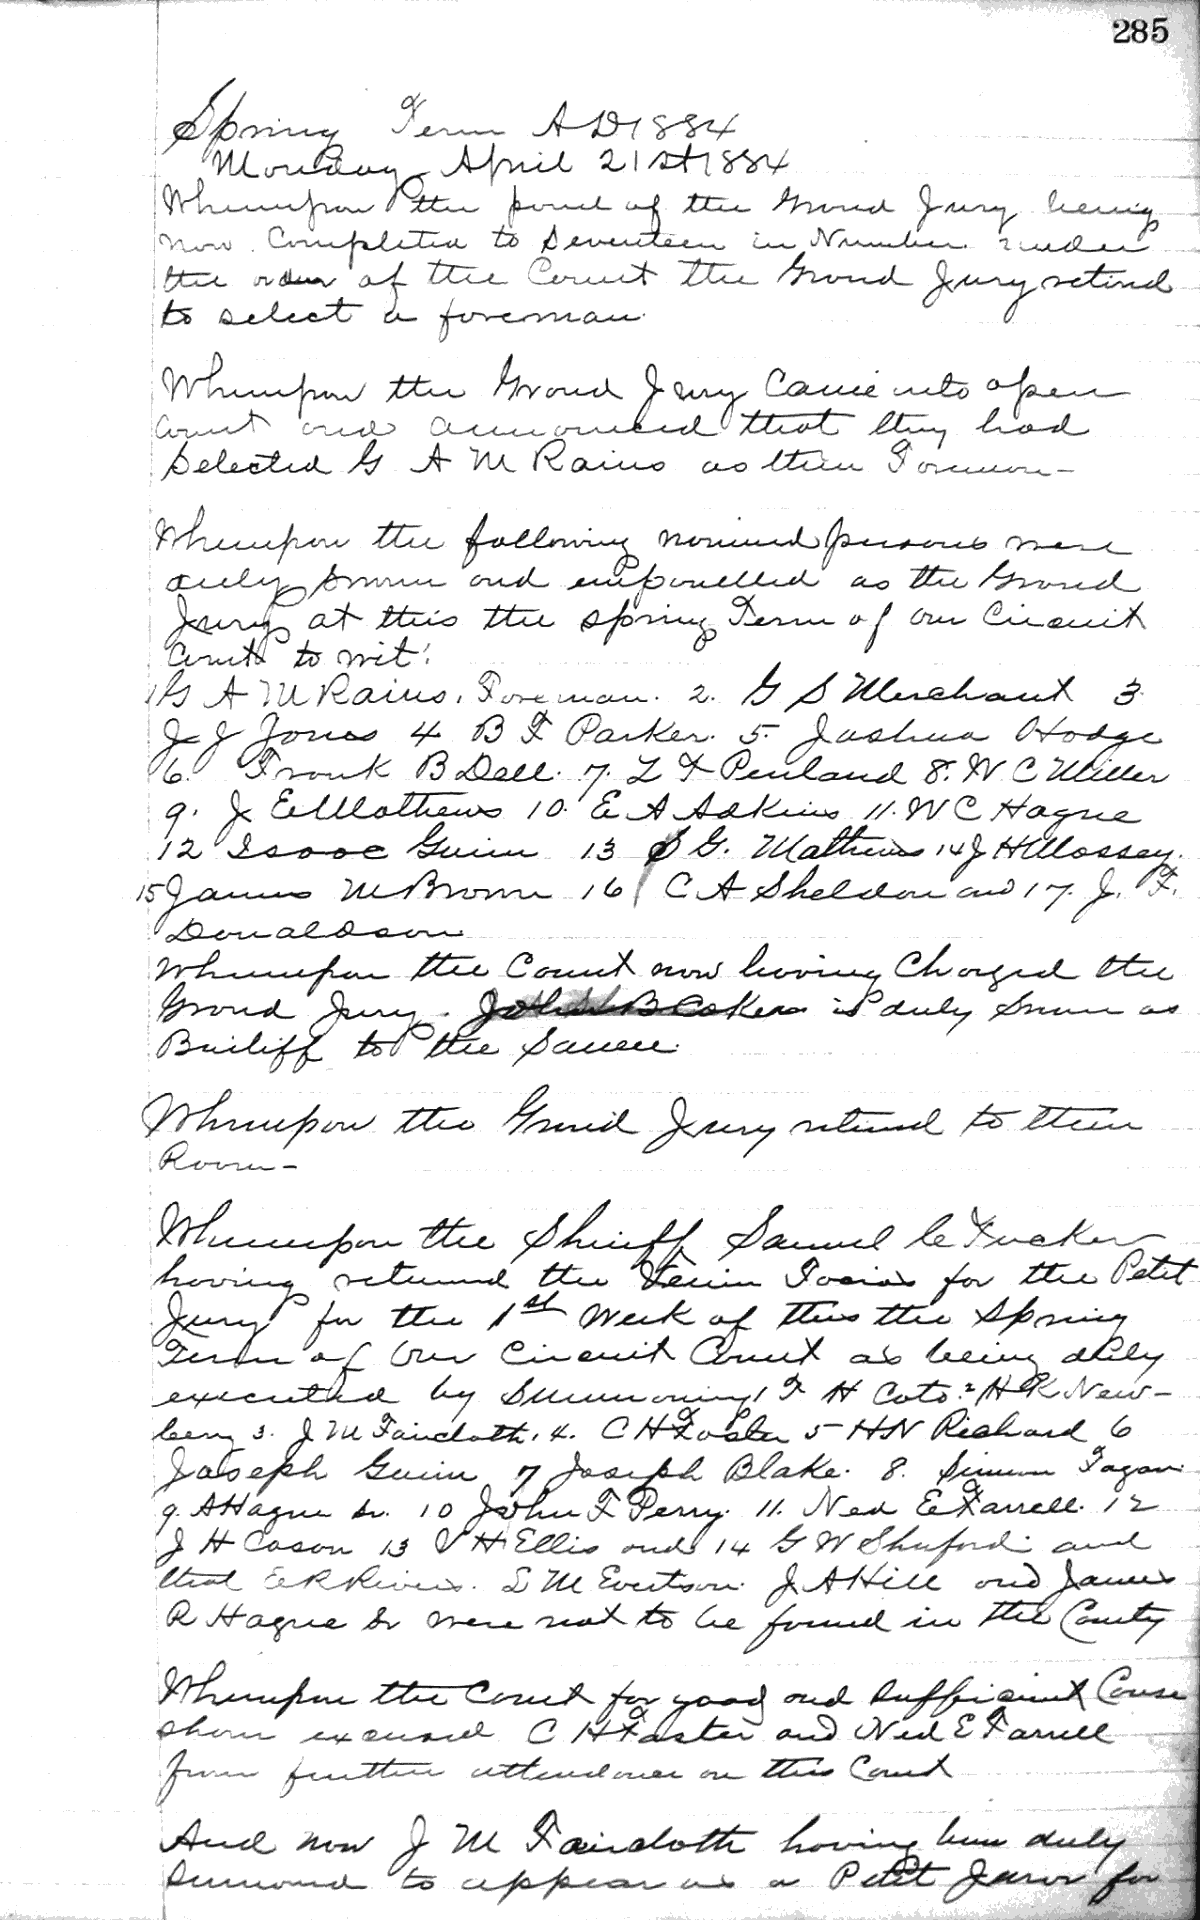 285
Spring Term A D 1884
Monday April 21st 1884
Whereupon the panel of the Grand Jury being
now Completed to Seventeen in Number under
the order of the Court the Grand Jury retired
to select a foreman.
Whereupon the Grand Jury Came into open
Court and announced that they had
Selected G A M Rains as their Foreman -
Whereupon the following named persons were
duly sworn and empanelled as the Grand
Jury at this the Spring Term of our Circuit
Court to wit:
1 G A M Rains, Foreman. 2. G S Merchant 3
J J Jones 4 B F Parker. 5. Jashua Hodge
6. Frank B Dell. 7. L F Penland 8. W C Miller
9. J E Mathews 10. E A Adkins 11. W C Hague
12 Isaac Guinn 13 S G. Mathews 14 J H Massey.
15 James M Brown 16 C A Sheldon and 17. J. F.
Donaldson
Whereupon the Court now having Charged the
Grand Jury. John B Coker is duly Sworn as
Bailiff to the Same.
Whereupon the Grand Jury retired to their
Room -
Whereupon the Sheriff Samuel C Tucker
having returned the Venire Facias for the Petit
Jury for the 1st Week of this the Spring
Term of Our Circuit Court as being duly
executed by Summoning 1 F H Coto. 2 H K New-
bery 3. J M Faircloth, 4. C H Foster 5 H N Richard 6
Joseph Guinn 7 Joseph Blake. 8. Simeon Fagan.
9. A Hague Sr. 10 John F Perry. 11. Ned E Farrell. 12
J H Cason 13 V H Ellis and 14 G W Shuford. and
that E R Rivers. L M Evertson. J A Hill and James
R Hague Sr were not to be found in the County
Whereupon the Court for good and Sufficient Cause
shown excused C H Foster and Ned E Farrell
from further attendance on this Court
And now J M Faircloth having been duly
Summoned to appear as a Petit Juror for